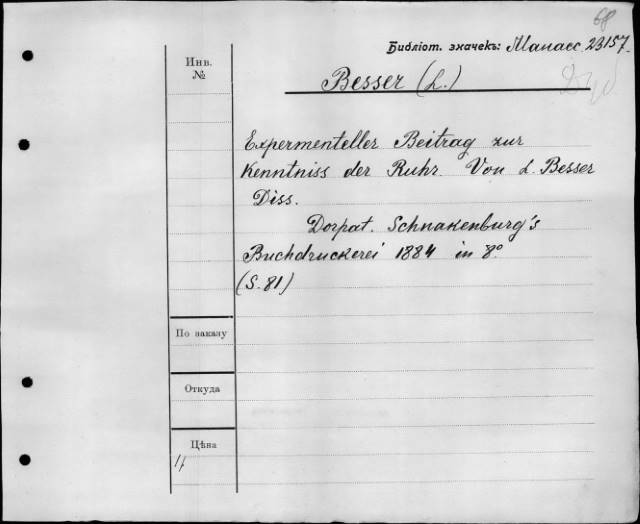 68
Библіот. значекъ: Манасс. 23157.
Инв.
№
Besser (L.)
Expermenteller Beitrag zur
Kenntniss der Ruhr. Von L. Besser
Diss.
Dorpat. Schnakenburg's
Buchdruckerei 1884 in 8°
(S. 81)
По заказу
Откуда
Цѣна